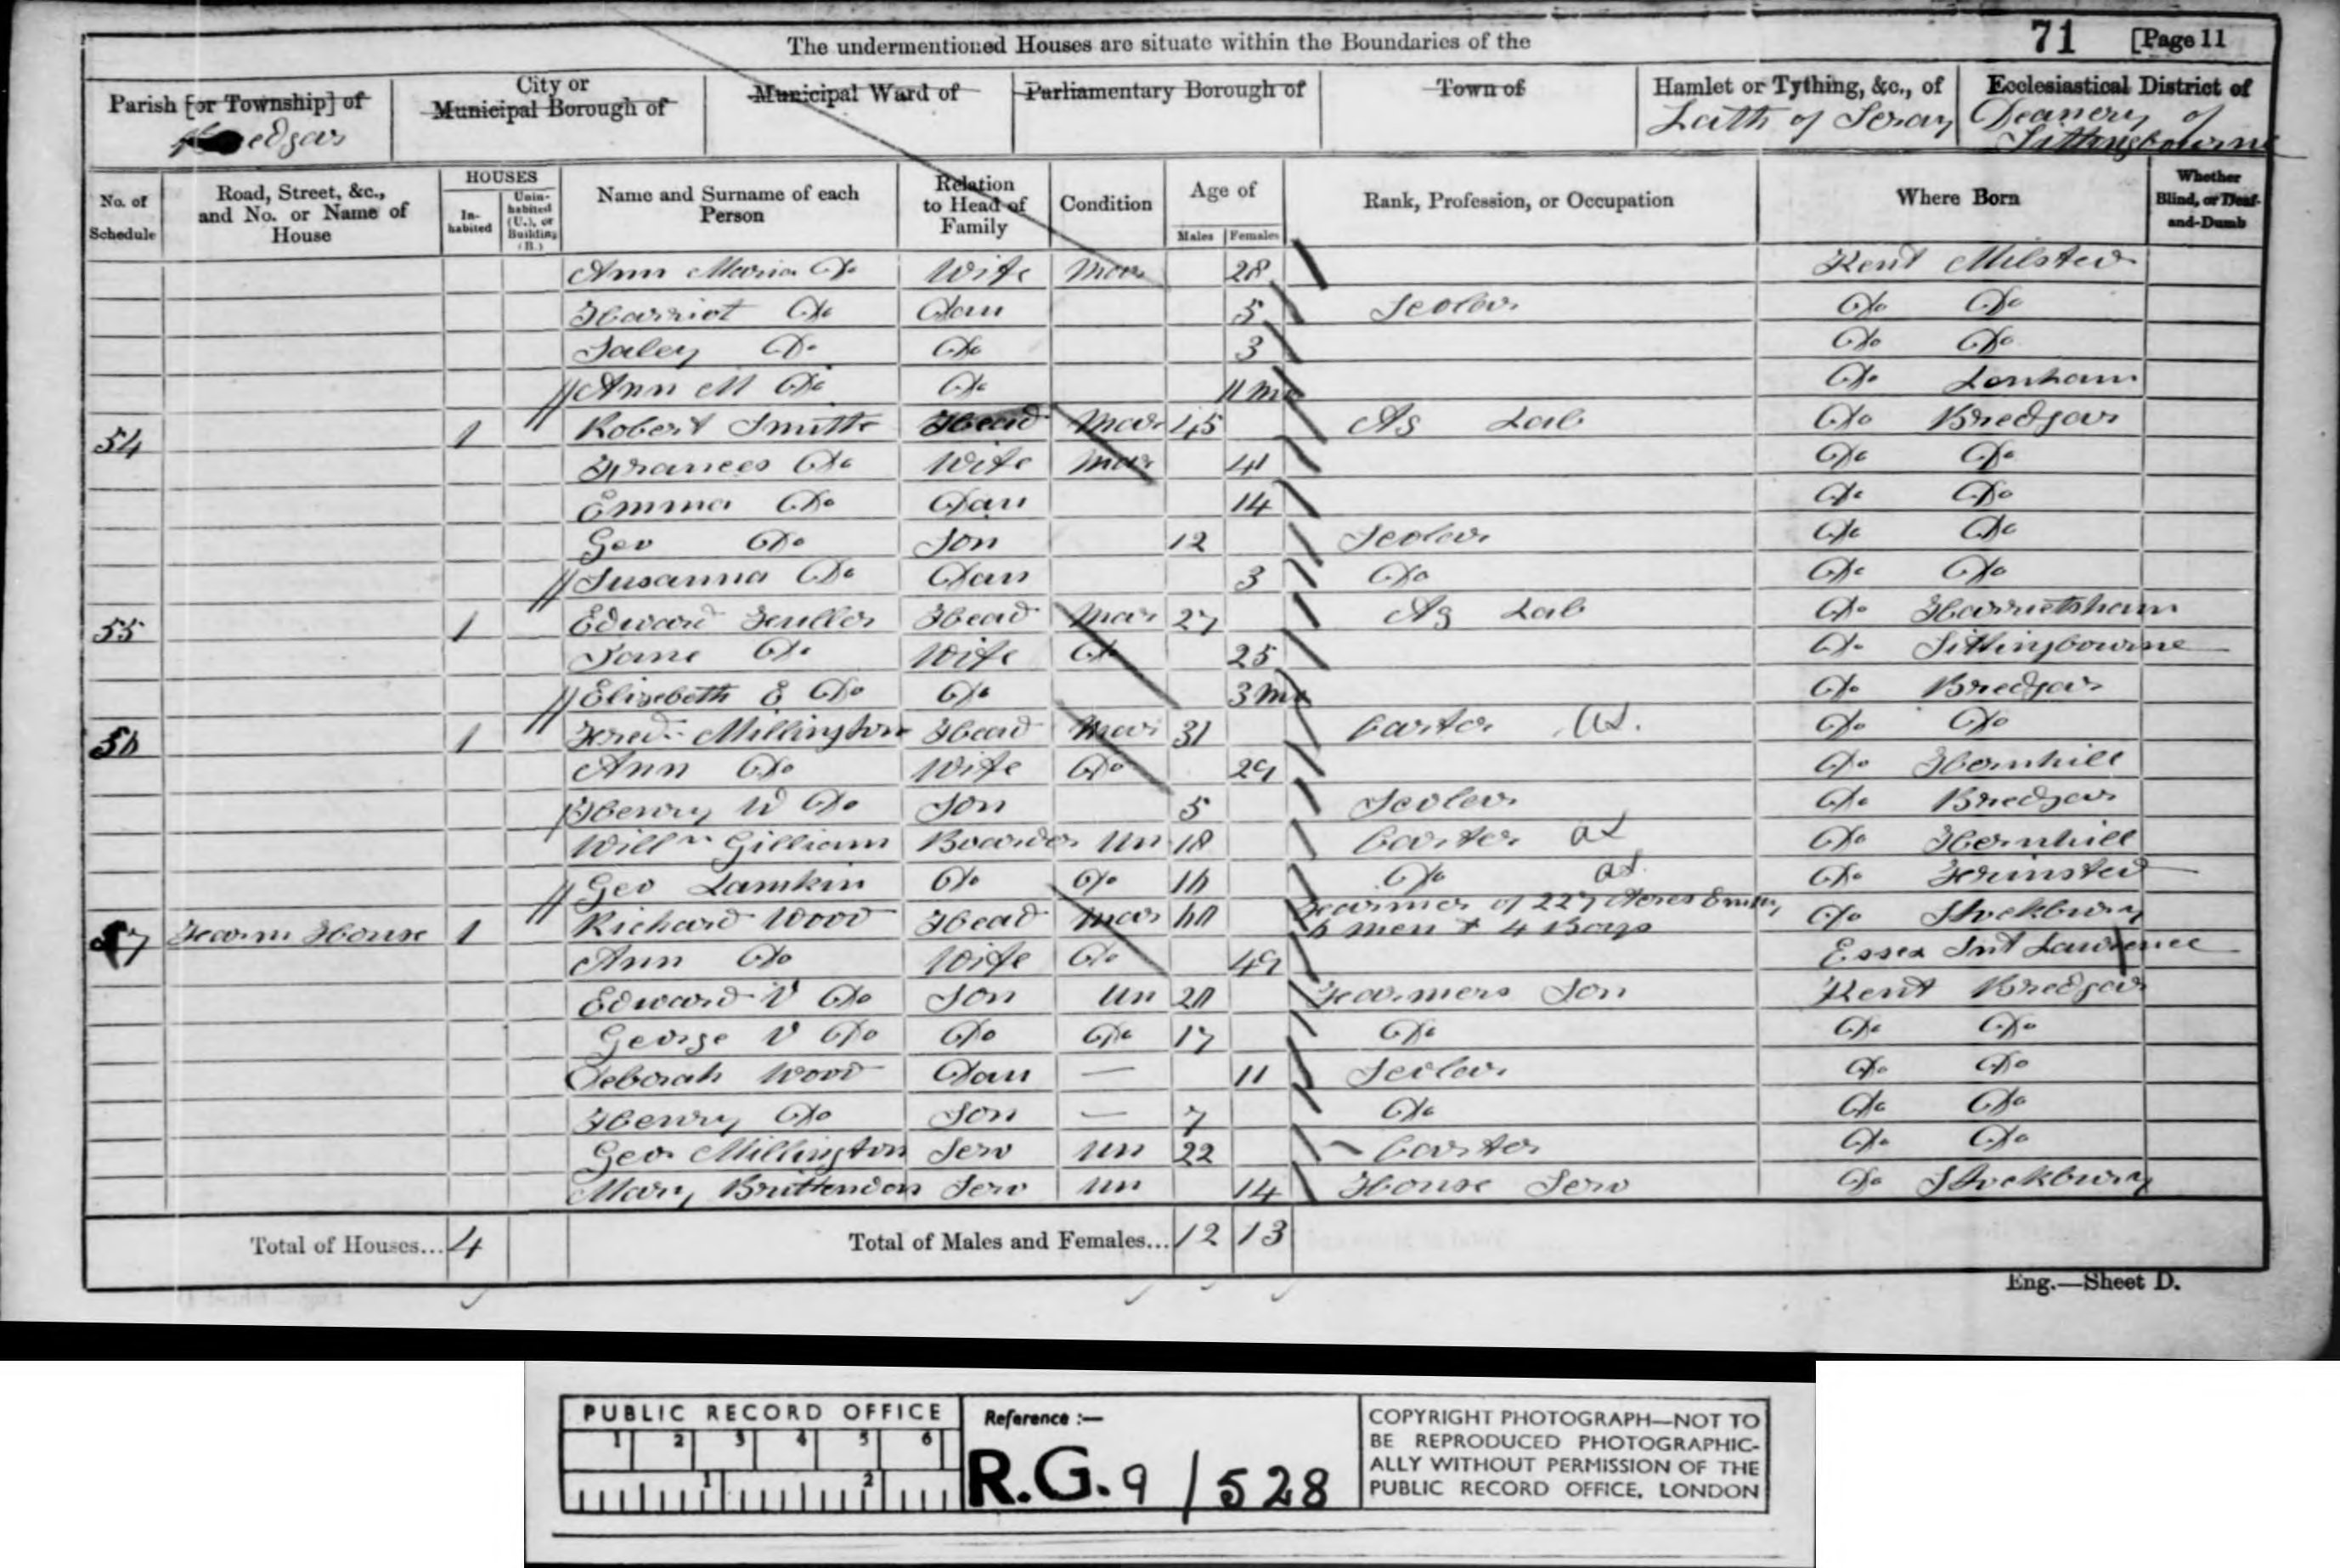 The undermentioned Houses are situate within the Boundaries of the
71 [Page 11
Parish [or Township] of
edgar
City or
Municipal Borough of
Municipal Ward of
Parliamentary Borough of
Town of
Hamlet or Tything, &c., of
Lath of Scray
Ecclesiastical District of
Deanery of
Sittingbourne
No. of
Schedule
Road, Street, &c.,
and No. or Name of
House
HOUSES
In-
habited
Unin-
habited
(U.), or
Building
(B.)
Name and Surname of each
Person
Relation
to Head of
Family
Condition
Age of
Males Females
Rank, Profession, or Occupation
Where Born
Whether
Blind, or Deaf-
and-Dumb
Ann Maria Do Wife Mar 28 Kent Milsted
Harriot Do Dau 5 Scolar Do Do
Do Do 3 Do Do
Ann M Do Do 11 mo Do Lenham
54 1 Robert Smith Head Mar 45 Ag Lab Do Bredgar
Frances Do Wife Mar 41 Do Do
Emma Do Dau 14 Do Do
Geo Do Son 12 Scolar Do Do
Susanna Do Dau 3 Do Do Do
55 1 Edward Fuller Head Mar 27 Ag Lab Do Harrietsham
Jane Do Wife Do 25 Do Sittingbourne
Elisebeth E Do Do 3 mo Do Bredgar
56 1 Fred Millington Head Mar 31 Carter Do Do
Ann Do Wife Do 29 Do Hernhill
Henry W Do Son 5 Scolar Do Bredgar
Willm Gilliam Boarder Un 18 Carter Do Hernhill
Geo Lamkin Do Do 16 Do Do Frinsted
57 Farm House 1 Richard Wood Head Mar 60 Farmer of 227 Acres Emty
6 men & 4 Boys Do Stockbury
Ann Do Wife Do 49 Essex Snt Lawrence
Edward V Do Son Un 20 Farmers Son Kent Bredgar
George V Do Do Do 17 Do Do Do
Deborah Wood Dau — 11 Scolar Do Do
Henry Do Son — 7 Do Do Do
Geo Millington Serv Un 22 Carter Do Do
Mary Bruttenden Serv Un 14 House Serv Do Stockbury
Total of Houses... 4 Total of Males and Females... 12 13
Eng.—Sheet D.
PUBLIC RECORD OFFICE
1 2 3 4 5 6
1 2
Reference :—
R.G. 9 / 528
COPYRIGHT PHOTOGRAPH—NOT TO
BE REPRODUCED PHOTOGRAPHIC-
ALLY WITHOUT PERMISSION OF THE
PUBLIC RECORD OFFICE, LONDON